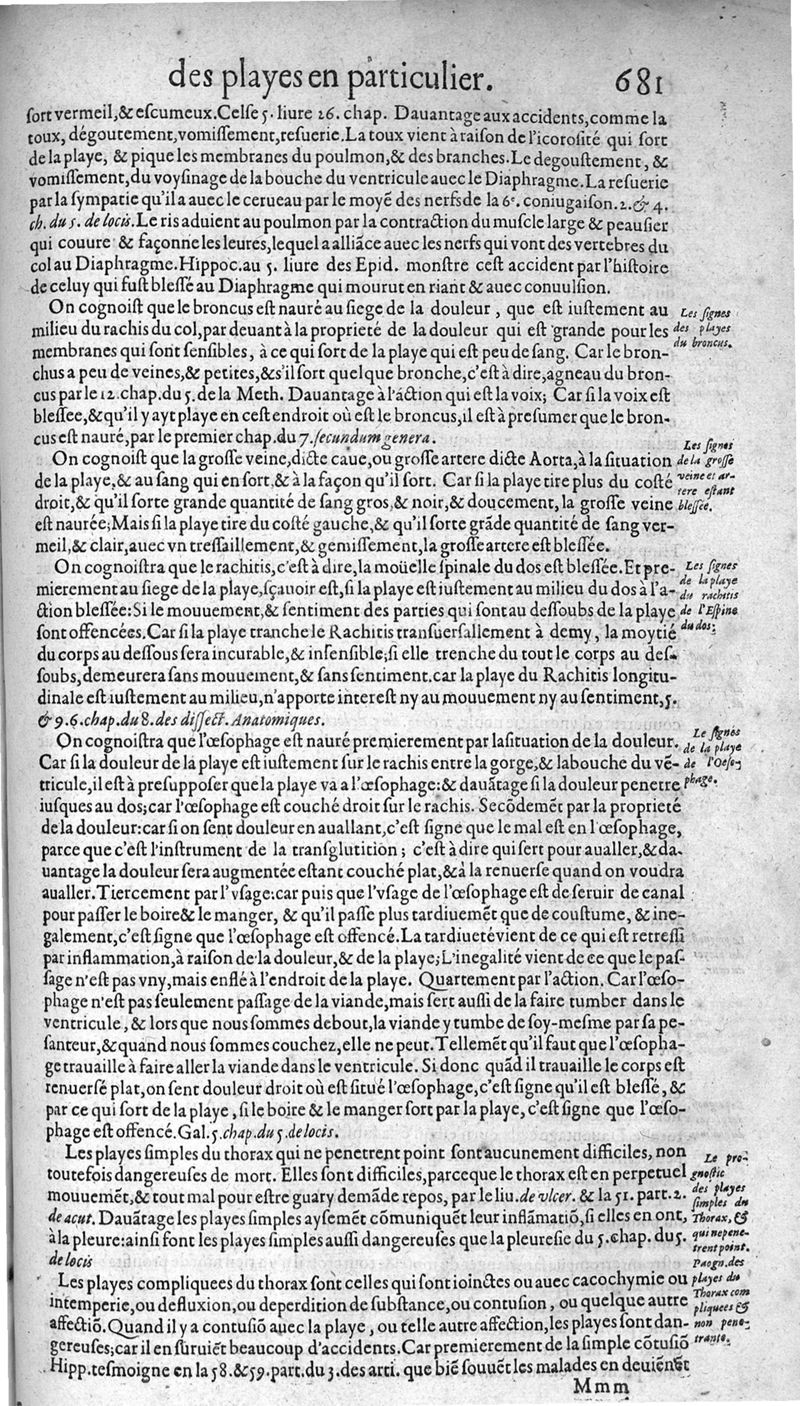 des playes en particulier. 681
sort vermeil,&escumeux.Celse 5. liure 26. chap. Dauantage aux accidents,comme la
toux, dégoutement,vomissement,resuerie.La toux vient à raison de l'icorosité qui sort
de la playe, & pique les membranes du poulmon,& des branches.Le degoustement, &
vomissement,du voysinage de la bouche du ventricule auec le Diaphragme.La resuerie
par la sympatie qu'il a auec le cerueau par le moyē des nerfs de la 6ᵉ. coniugaison.2.& 4.
ch.du 5. de locis.Le ris aduient au poulmon par la contraction du muscle large & peausier
qui couure & façonne les leures,lequel a alliāce auec les nerfs qui vont des vertebres du
col au Diaphragme.Hippoc.au 5. liure des Epid. monstre cest accident par l'histoire
de celuy qui fust blessé au Diaphragme qui mourut en riant & auec conuulsion.
On cognoist que le broncus est nauré au siege de la douleur , que est iustement au
milieu du rachis du col,par deuant à la proprieté de la douleur qui est grande pour les
membranes qui sont sensibles, à ce qui sort de la playe qui est peu de sang. Car le bron-
chus a peu de veines,& petites,&s'il sort quelque bronche,c'est à dire,agneau du bron-
cus par le 12.chap.du 5.de la Meth. Dauantage à l'action qui est la voix; Car si la voix est
blessee,&qu'il y ayt playe en cest endroit où est le broncus,il est à presumer que le bron-
cus est nauré,par le premier chap.du 7.secundum genera.
Les signes
des playes
du broncus.
On cognoist que la grosse veine,dicte caue,ou grosse artere dicte Aorta,à la situation
de la playe,& au sang qui en sort,& à la façon qu'il sort. Car si la playe tire plus du costé
droit,& qu'il sorte grande quantité de sang gros,& noir,& doucement,la grosse veine
est naurée;Mais si la playe tire du costé gauche,& qu'il sorte grāde quantité de sang ver-
meil,& clair,auec vn tressaillement,& gemissement,la grosse artere est blessée.
Les signes
de la grosse
veine et ar-
tere estant
blessée.
On cognoistra que le rachitis,c'est à dire,la moüelle spinale du dos est blessée.Et pre-
mierement au siege de la playe,sçauoir est,si la playe est iustement au milieu du dos à l'a-
ction blessée:Si le mouuement,& sentiment des parties qui sont au dessoubs de la playe
sont offencées.Car si la playe tranche le Rachitis transuersallement à demy, la moytié
du corps au dessous sera incurable,& insensible;si elle trenche du tout le corps au des-
soubs,demeurera sans mouuement,& sans sentiment.car la playe du Rachitis longitu-
dinale est iustement au milieu,n'apporte interest ny au mouuement ny au sentiment,5.
& 9.6.chap.du 8.des dissect.Anatomiques.
Les signes
de la playe
du rachitis
de l'Espine
du dos:
On cognoistra que l'œsophage est nauré premierement par la situation de la douleur.
Car si la douleur de la playe est iustement sur le rachis entre la gorge,& la bouche du vē-
tricule,il est à presupposer que la playe va a l'œsophage:& dauātage si la douleur penetre
iusques au dos;car l'œsophage est couché droit sur le rachis. Secōdemēt par la proprieté
de la douleur:car si on sent douleur en auallant,c'est signe que le mal est en l'œsophage,
parce que c'est l'instrument de la transglutition ; c'est à dire qui sert pour aualler,& da-
uantage la douleur sera augmentée estant couché plat,&à la renuerse quand on voudra
aualler.Tiercement par l'vsage:car puis que l'vsage de l'œsophage est de seruir de canal
pour passer le boire & le manger, & qu'il passe plus tardiuemēt que de coustume, & ine-
galement,c'est signe que l'œsophage est offencé.La tardiueté vient de ce qui est retressi
par inflammation,à raison de la douleur,& de la playe;L'inegalité vient de ce que le pas-
sage n'est pas vny,mais enflé à l'endroit de la playe. Quartement par l'action. Car l'œso-
phage n'est pas seulement passage de la viande,mais sert aussi de la faire tumber dans le
ventricule,& lors que nous sommes debout,la viande y tumbe de soy-mesme par sa pe-
santeur,&quand nous sommes couchez,elle ne peut.Tellemēt qu'il faut que l'œsopha-
ge trauaille à faire aller la viande dans le ventricule. Si donc quād il trauaille le corps est
renuersé plat,on sent douleur droit où est situé l'œsophage,c'est signe qu'il est blessé,&
par ce qui sort de la playe,si le boire & le manger sort par la playe,c'est signe que l'œso-
phage est offencé.Gal.5.chap.du 5.de locis.
Le signes
de la playe
de l'Oeso-
phage.
Les playes simples du thorax qui ne penetrent point sont aucunement difficiles, non
toutefois dangereuses de mort. Elles sont difficiles,parceque le thorax est en perpetuel
mouuemēt,& tout mal pour estre guary demāde repos, par le liu.de vlcer. & la 51. part.2.
de acut. Dauātage les playes simples aysemēt cōmuniquēt leur inflāmatiō,si elles en ont,
à la pleure:ainsi font les playes simples aussi dangereuses que la pleuresie du 5.chap. du 5.
de locis
Le pro-
gnostic
des playes
simples du
Thorax,&
qui ne pene-
trent point.
Les playes compliquees du thorax sont celles qui sont ioinctes ou auec cacochymie ou
intemperie,ou defluxion,ou deperdition de substance,ou contusion, ou quelque autre
affectiō.Quand il y a contusiō auec la playe, ou telle autre affection,les playes sont dan-
gereuses;car il en suruiēt beaucoup d'accidents.Car premierement de la simple cōtusiō
Hipp.tesmoigne en la 58.&59.part.du 3.des arti. que biē souuēt les malades en deuiēnēt
Paogn.des
playes du
Thorax com
pliquees &
non pene-
trante.
Mmm